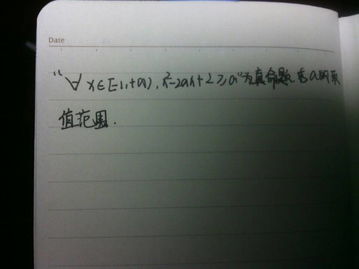 Date
“∀ x∈[-1,+∞),x²-2ax+2≥a”为真命题,求a的取
值范围.